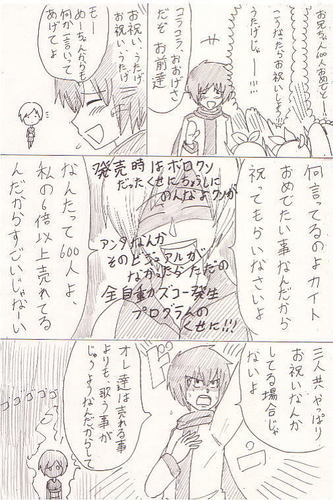 お兄ちゃん600人おめでとう!
こうなったらお祝いしましょう!
うたげじゃー!!!
コラコラ、おおげさ
だぞ お前達
お祝い、うたげ
お祝い、うたげ
もー
めーちゃんからも
何か言って
あげてよ
何言ってるのよカイト
おめでたい事なんだから
祝ってもらいなさいよ
発売時はボロクソ
だったくせにちょうしに
のんなよクソが
アンタなんか
そのビジュアルが
なかったらただの
全自動カズコー発生
プログラムの
くせに!!!
なんたって600人よ、
私の6倍以上売れてる
んだからすごいじゃない
三人共、やっぱり
お祝いなんか
してる場合じゃ
ないよ
オレ達は売れる事
よりも、歌う事が
じゅうようなんだからして
ゴゴゴゴゴ